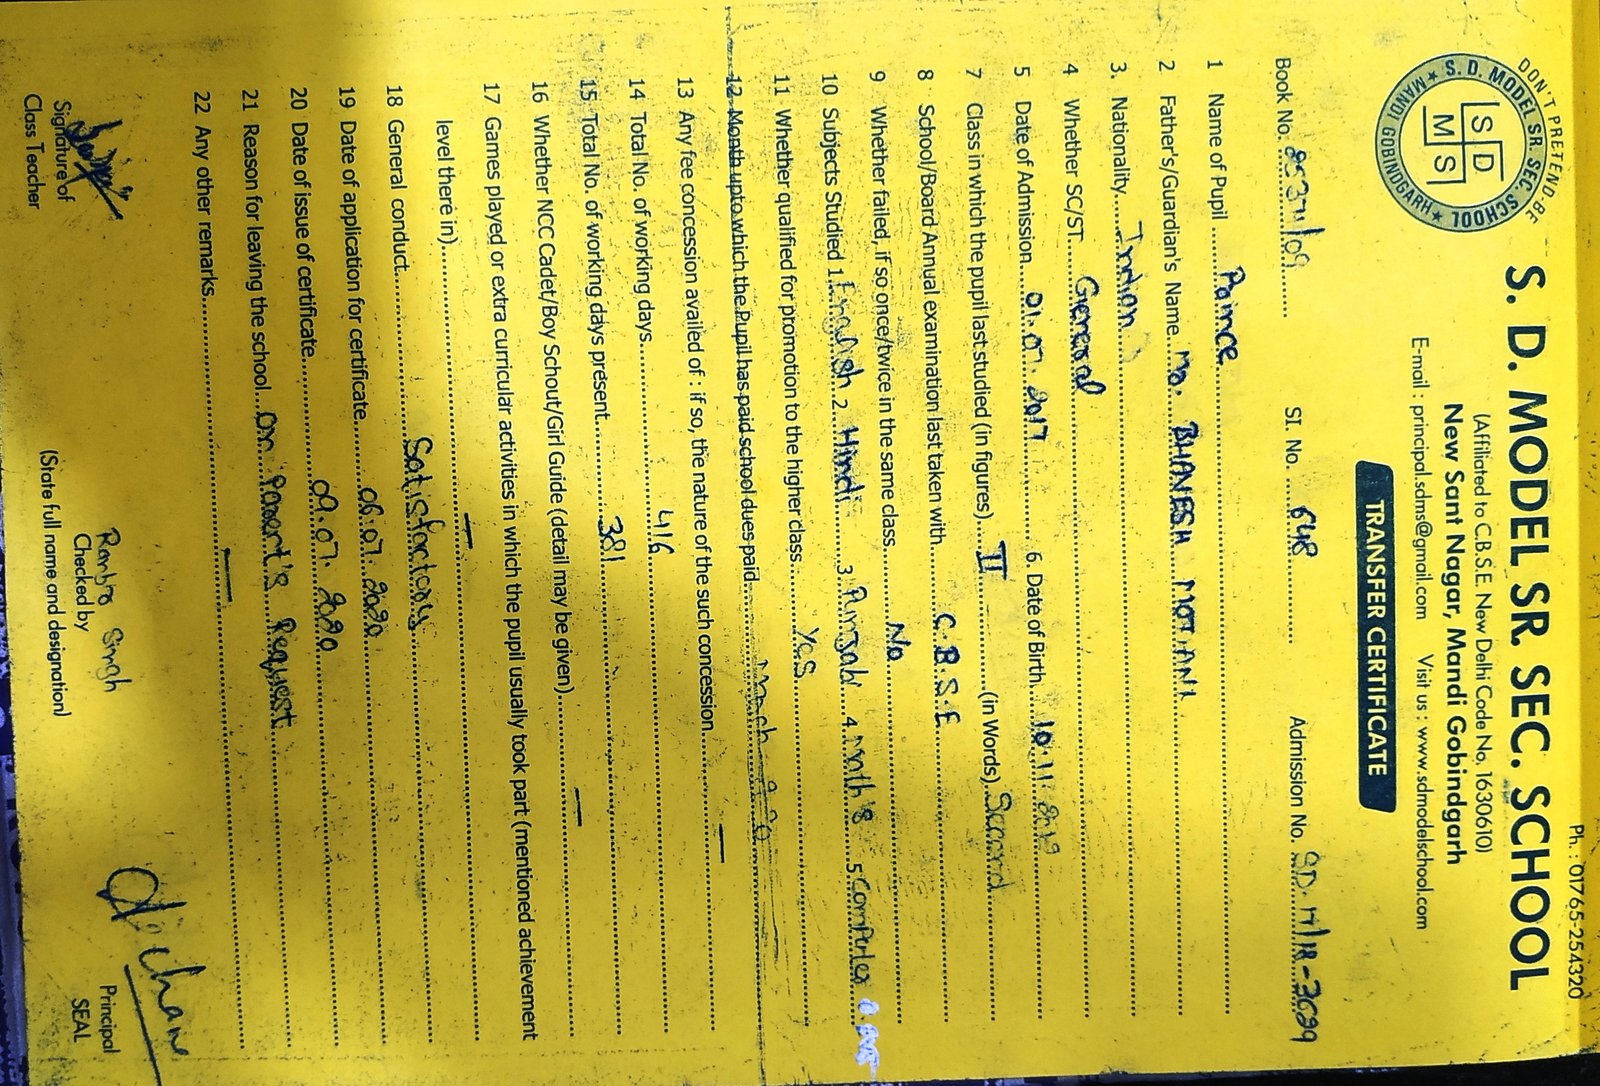 Ph. : 01765-254320
DON'T PRETEND-BE
S. D. MODEL SR. SEC. SCHOOL
MANDI GOBINDGARH
S D
M S
S. D. MODEL SR. SEC. SCHOOL
(Affiliated to C.B.S.E. New Delhi Code No. 1630610)
New Sant Nagar, Mandi Gobindgarh
E-mail : principal.sdms@gmail.com Visit us : www.sdmodelschool.com
TRANSFER CERTIFICATE
Book No. SI. No. 648 Admission No.
1 Name of Pupil Prince
2 Father's/Guardian's Name Mr. BHANESH MOTANI
3. Nationality Indian
4 Whether SC/ST General
5 Date of Admission 01.07.2017 6. Date of Birth
7 Class in which the pupil last studied (in figures) II (in Words) Second
8 School/Board Annual examination last taken with C.B.S.E
9 Whether failed, if so once/twice in the same class No
10 Subjects Studied 1. English 2. Hindi 3. Punjabi 4. Math's 5. Computer
11 Whether qualified for promotion to the higher class Yes
12 Month upto which the Pupil has paid school dues paid
13 Any fee concession availed of : if so, the nature of the such concession —
14 Total No. of working days 416
15 Total No. of working days present 381
16 Whether NCC Cadet/Boy Schout/Girl Guide (detail may be given) —
17 Games played or extra curricular activities in which the pupil usually took part (mentioned achievement
level there in) —
18 General conduct Satisfactory
19 Date of application for certificate 06.07.2020
20 Date of issue of certificate 09.07.2020
21 Reason for leaving the school On Parent's Request
22 Any other remarks —
Signature of
Class Teacher
Singh
Checked by
(State full name and designation)
Principal
SEAL